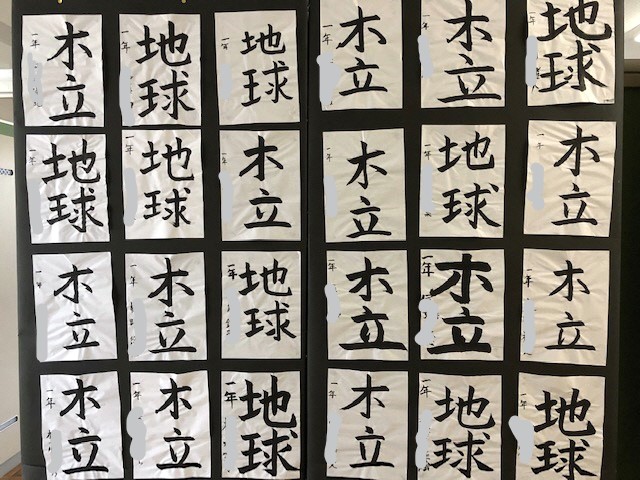 木立
一年
地球
一年
地球
一年
木立
一年
木立
一年
地球
地球
一年
地球
一年
木立
一年
木立
一年
地球
一年
木立
一年
木立
一年
木立
一年
地球
一年
木立
一年
木立
一年
木立
一年
木立
一年
木立
一年
地球
一年
木立
一年
地球
一年
地球
一年